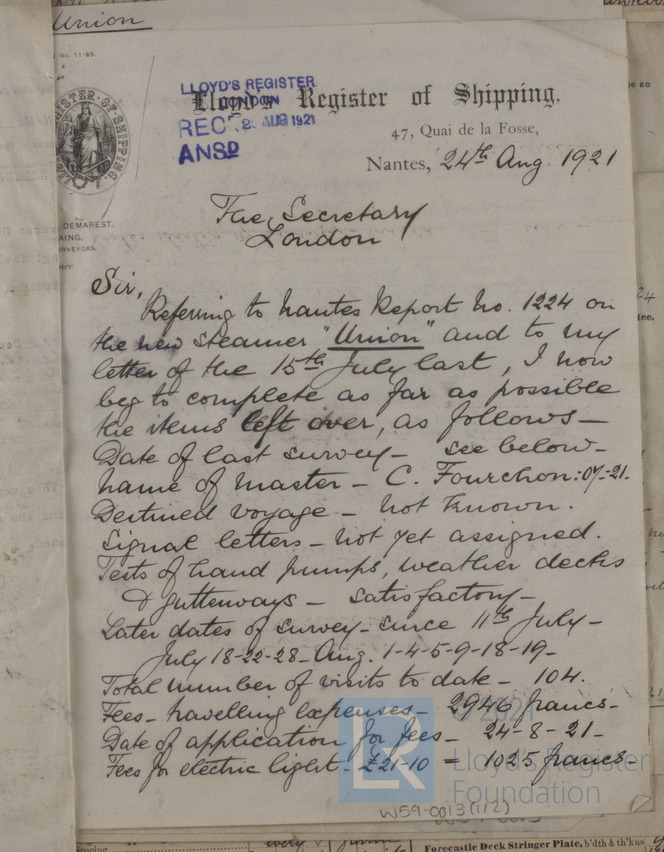 Union
No. 11-65.
LLOYD'S REGISTER
LONDON
REC'D 2 AUG 1921
ANSD
Lloyd's Register of Shipping.
47, Quai de la Fosse,
Nantes, 24th Aug. 1921
DEMAREST.
AING.
RVEYORS.
The Secretary
London
Sir,
Referring to Nantes Report No. 1224 on
the new steamer "Union" and to my
letter of the 15th July last, I now
beg to complete as far as possible
the items left over, as follows –
Date of last survey – see below –
Name of Master – C. Fourchon: 07-21.
Destined voyage – not known.
Signal letters – not yet assigned.
Tests of hand pumps, weather decks
& gutterways – satisfactory –
Later dates of survey – since 11th July –
July 18-22-28- Aug. 1-4-5-9-18-19-
Total number of visits to date – 104.
Fees – travelling expenses – 2946 francs –
Date of application for fees – 24-8-21 –
Fees for electric light – £21-10 = 1025 francs –
© 2021
LR
Lloyd's Register
Foundation
W59-0013(1/2)
Forecastle Deck Stringer Plate, b'dth & th'kns